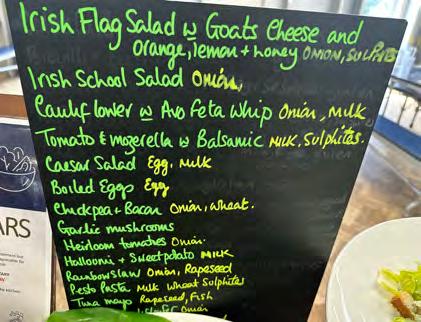 Irish Flag Salad w Goats Cheese and
orange, lemon + honey ONION, SULPHITES
Irish School Salad Onion,
Cauliflower w Avo Feta Whip Onion, Milk
Tomato & mozerella w Balsamic MILK, Sulphites.
Caesar Salad Egg, Milk
Boiled Eggs Egg
Chickpea + Bacon Onion, wheat.
Garlic mushrooms
Heirloom tomatoes Onion.
Halloumi + Sweetpotato MILK
Rainbowslaw Onion, Rapeseed
Pesto Pasta Milk Wheat Sulphites
Tuna mayo Rapeseed, Fish
Onion
ARS